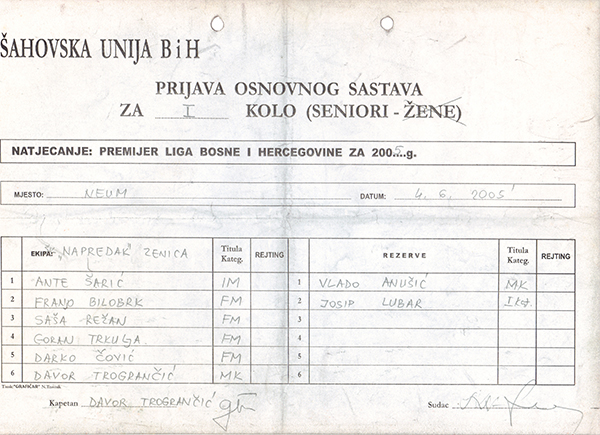 ŠAHOVSKA UNIJA BiH
PRIJAVA OSNOVNOG SASTAVA
ZA I KOLO (SENIORI - ŽENE)
NATJECANJE: PREMIJER LIGA BOSNE I HERCEGOVINE ZA 2005..g.
MJESTO: NEUM DATUM: 4. 6. 2005
EKIPA: "NAPREDAK" ZENICA Titula Kateg. REJTING REZERVE Titula Kateg. REJTING
1 ANTE ŠARIĆ IM 1 VLADO ANUŠIĆ MK
2 FRANO BILOBRK FM 2 JOSIP LUBAR I
3 SAŠA REŽAN FM 3
4 GORAN TRKULJA FM 4
5 DARKO ČOVIĆ FM 5
6 DAVOR TROGRANČIĆ MK 6
Tisak: "GRAFIČAR"
Kapetan DAVOR TROGRANČIĆ Sudac